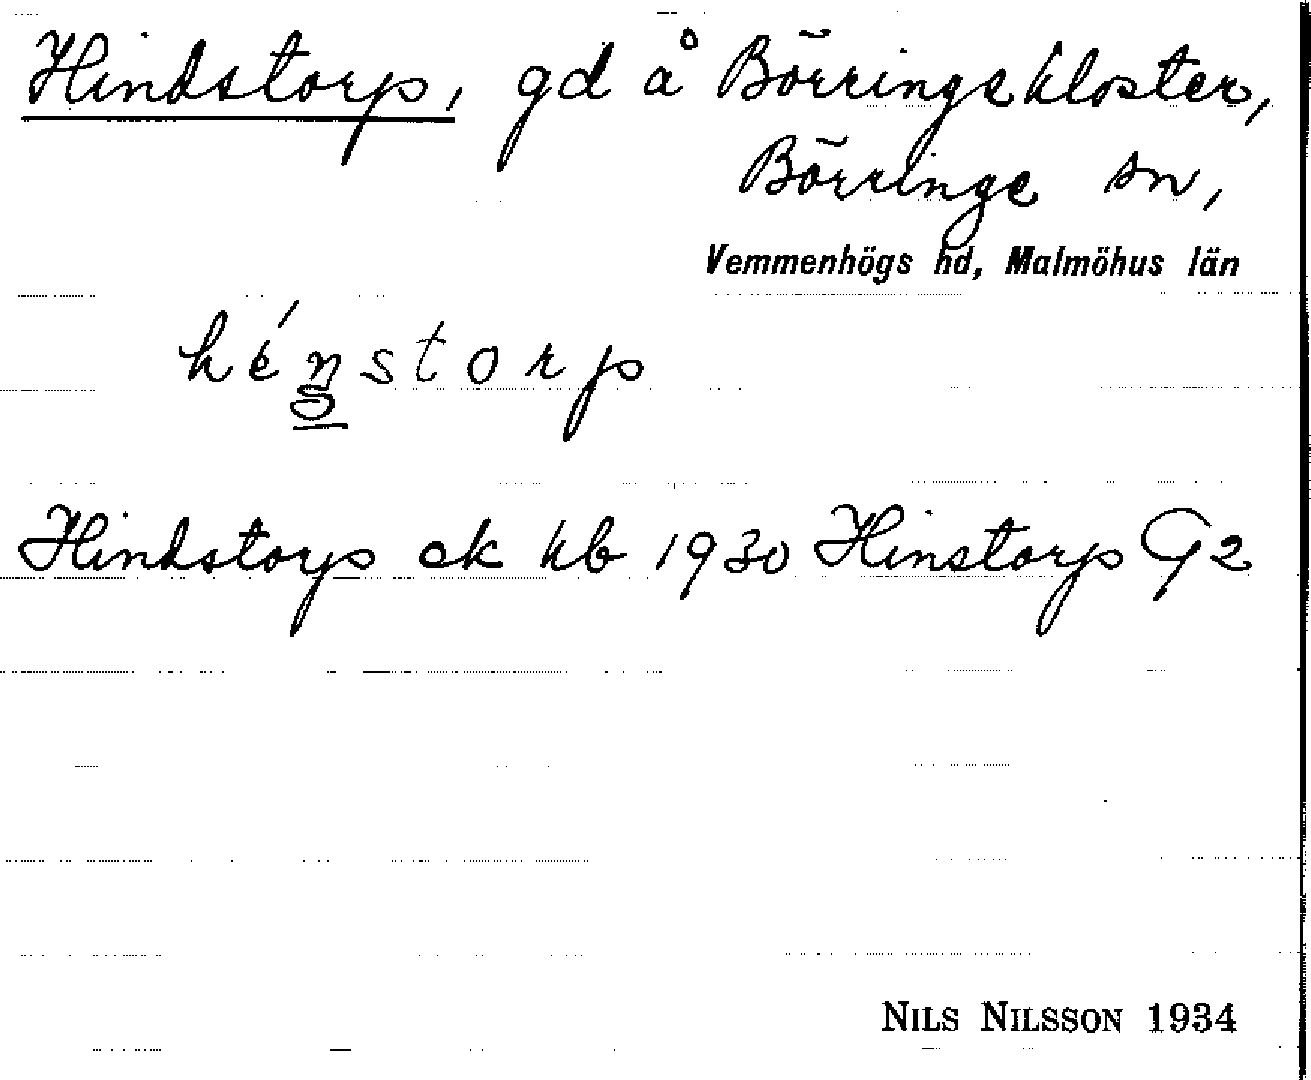 Hindstorp, gd å Börringekloster,
Börringe sn,
Vemmenhögs hd, Malmöhus län
hénstorp
Hindstorp ek kb 1930 Hinstorp G2
NILS NILSSON 1934